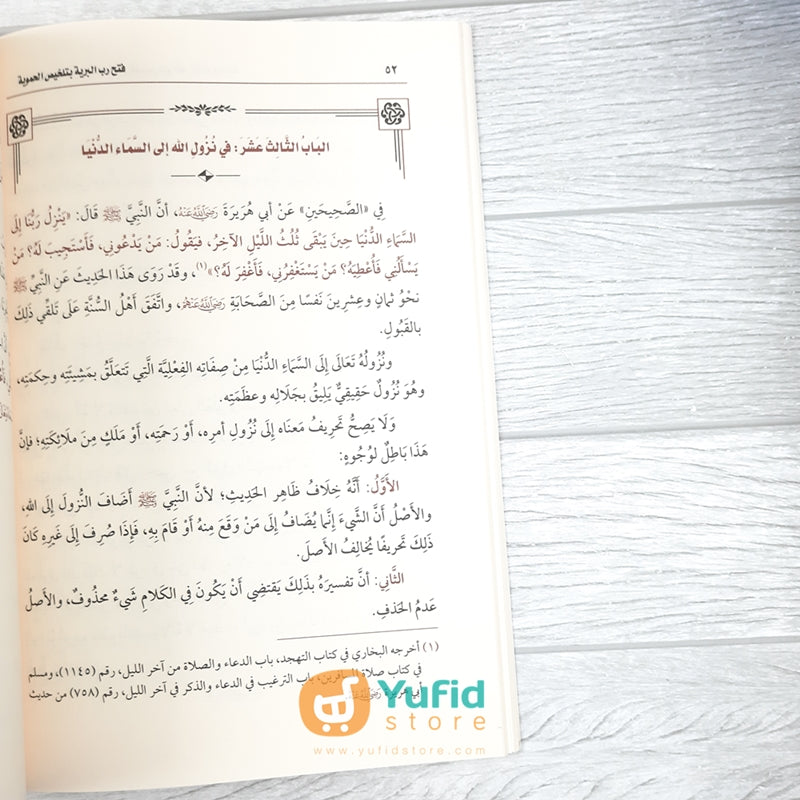 ٥٢ فتح رب البرية بتلخيص الحموية
البَابُ الثَّالِث عَشَرَ: في نُزُولِ الله إلى السَّمَاء الدُّنْيَا
فِي «الصَّحِيحَينِ» عَنْ أبي هُرَيرَةَ رَضِيَ اللَّهُ عَنْهُ، أنَّ النَّبِيَّ ﷺ قَالَ: «يَنْزِلُ رَبُّنَا إلَى
السَّمَاءِ الدُّنْيَا حِينَ يَبْقَى ثُلُثُ اللَّيْلِ الآخِرُ، فيَقُولُ: مَنْ يَدْعُونِي، فَأَسْتَجِيبَ لَهُ؟ مَنْ
يَسْأَلُنِي فَأُعْطِيَهُ؟ مَنْ يَسْتَغْفِرُنِي، فَأَغْفِرَ لَهُ؟»(١)، وقَدْ رَوَى هَذَا الحَدِيثَ عَنِ النَّبِيِّ ﷺ
نحْوُ ثمانٍ وعِشرِينَ نَفسًا مِنَ الصَّحَابَةِ رَضِيَ اللَّهُ عَنْهُمْ، واتَّفَقَ أهْلُ السُّنَّةِ عَلَى تَلقِّي ذَلِكَ
بالقَبُولِ.
ونُزُولُهُ تَعَالَى إلَى السَّمَاءِ الدُّنْيَا مِنْ صِفَاتِه الفِعْلِيَّة الَّتِي تَتعَلَّقُ بمَشِيئَتِه وحِكمَتِه،
وهُوَ نُزُولٌ حَقِيقِيٌّ يَلِيقُ بجَلَالِه وعظَمَتِه.
وَلَا يَصِحُّ تَحْرِيفُ مَعنَاه إلَى نُزُولِ أمرِه، أوْ رَحمَتِه، أوْ مَلَكٍ مِنَ مَلَائِكَتِهِ؛ فإنَّ
هَذَا بَاطِلٌ لوُجُوهٍ:
الأَوَّلُ: أنَّهُ خِلَافُ ظَاهِرِ الحَدِيثِ؛ لأنَّ النَّبِيَّ ﷺ أضَافَ النُّزُولَ إلَى اللهِ،
والأَصْلُ أنَّ الشَّيءَ إنَّمَا يُضَافُ إلَى مَنْ وَقَعَ مِنهُ أوْ قَامَ بِهِ، فَإذَا صُرِفَ إلَى غَيرِهِ كَانَ
ذَلِكَ تَحرِيفًا يُخَالِفُ الأَصلَ.
الثَّانِي: أنَّ تفسِيرَهُ بذَلِكَ يَقتَضِي أنْ يَكُونَ فِي الكَلَامِ شَيءٌ محذُوفٌ، والأَصلُ
عَدمُ الحَذفِ.
(١) أخرجه البخاري في كتاب التهجد، باب الدعاء والصلاة من آخر الليل، رقم (١١٤٥)، ومسلم
في كتاب صلاة المسافرين، باب الترغيب في الدعاء والذكر في آخر الليل، رقم (٧٥٨) من حديث
أبي هريرة رَضِيَ اللَّهُ عَنْهُ.
Yufid
store
www.yufidstore.com